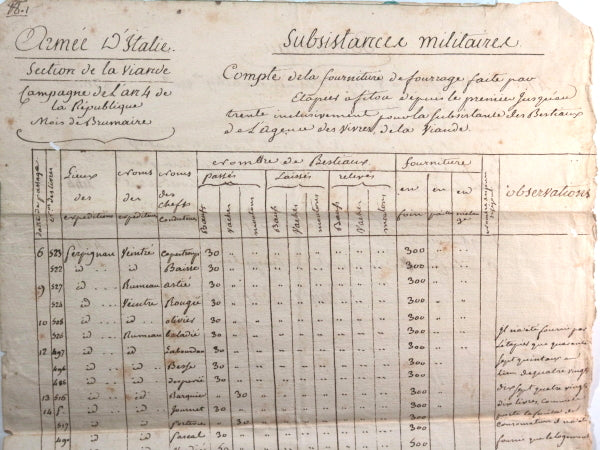 Armée D'Italie.
Section de la Viande
Campagne de L'an 4 de
la République
Mois de Brumaire
Subsistances militaires
Compte de la fourniture de fourrage faite par
Etapier a fitou depuis le premier Jusqu'au
trente inclusivement pour la subsistante des Bestiaux
de L'agence des vivres de la Viande.
date de passage
Nos des
Lieux des expeditions
noms des expediteurs
noms des Chefs Conducteurs
nombre de Bestiaux
passés
laissés
relevés
Bœufs
Vaches
moutons
Bœufs
Vaches
moutons
Bœufs
Vaches
moutons
fourniture
en foin
en paille
en
observations
6 523 Perpignan Peintre 30 300
522 id id Baisse 30 300
9 527 id Rumeau astié 30 300
524 id Peintre Rougié 30 300
10 508 id id olivier 30 300
526 id Rumeau baladié 30 300
12 497 id id 30 300
496 id id Besse 30 300
486 id id 30 300
13 516 id id Barquier 30 300
14 id id Journet 30 300
517 id id 30 300
490 id id Pascal 30 300
Il n'a été fourni par
l'étapier que quarante
sept quintaux au
lieu de quatre vingt
dix sept quatre vingt
dix livres, comme le
porte la feuille de
consommation il n'a été
fourni que le logement